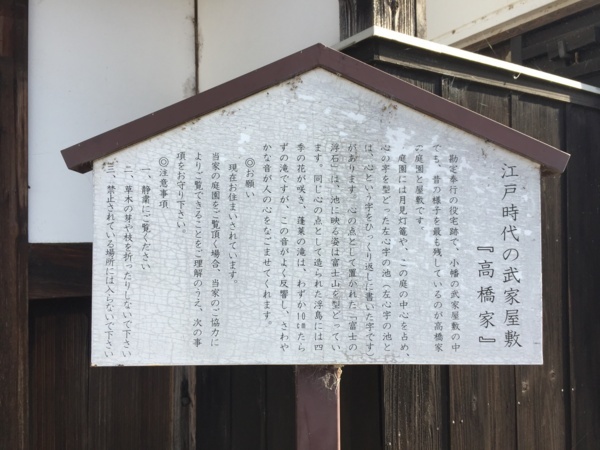 江戸時代の武家屋敷
『高橋家』
勘定奉行の役宅跡で、小幡の武家屋敷の中
でも、昔の様子を最も残しているのが高橋家
の庭園と屋敷です。
庭園には月見灯籠や、この庭の中心を占め、
心の字を型どった左心字の池（左心字の池と
は、心という字をひっくり返しに書いた字です）
があります。心の点として置かれた「富士の
浮石」は、池に映る姿は富士山を型どってい
ます。同じ心の点として造られた浮島には四
季の花が咲き、蓬莱の滝は、わずか10㎝たら
ずの滝ですが、この音がよく反響し、さわや
かな音が人の心をなごませてくれます。
◎お願い
現在お住まいされています。
当家の庭園をご覧頂く場合、当家のご協力に
よりご覧できることをご理解のうえ、次の事
項をお守り下さい。
◎注意事項
一、静粛にご覧ください
二、草木の芽や枝を折ったりしないで下さい
三、禁止されている場所には入らないで下さい